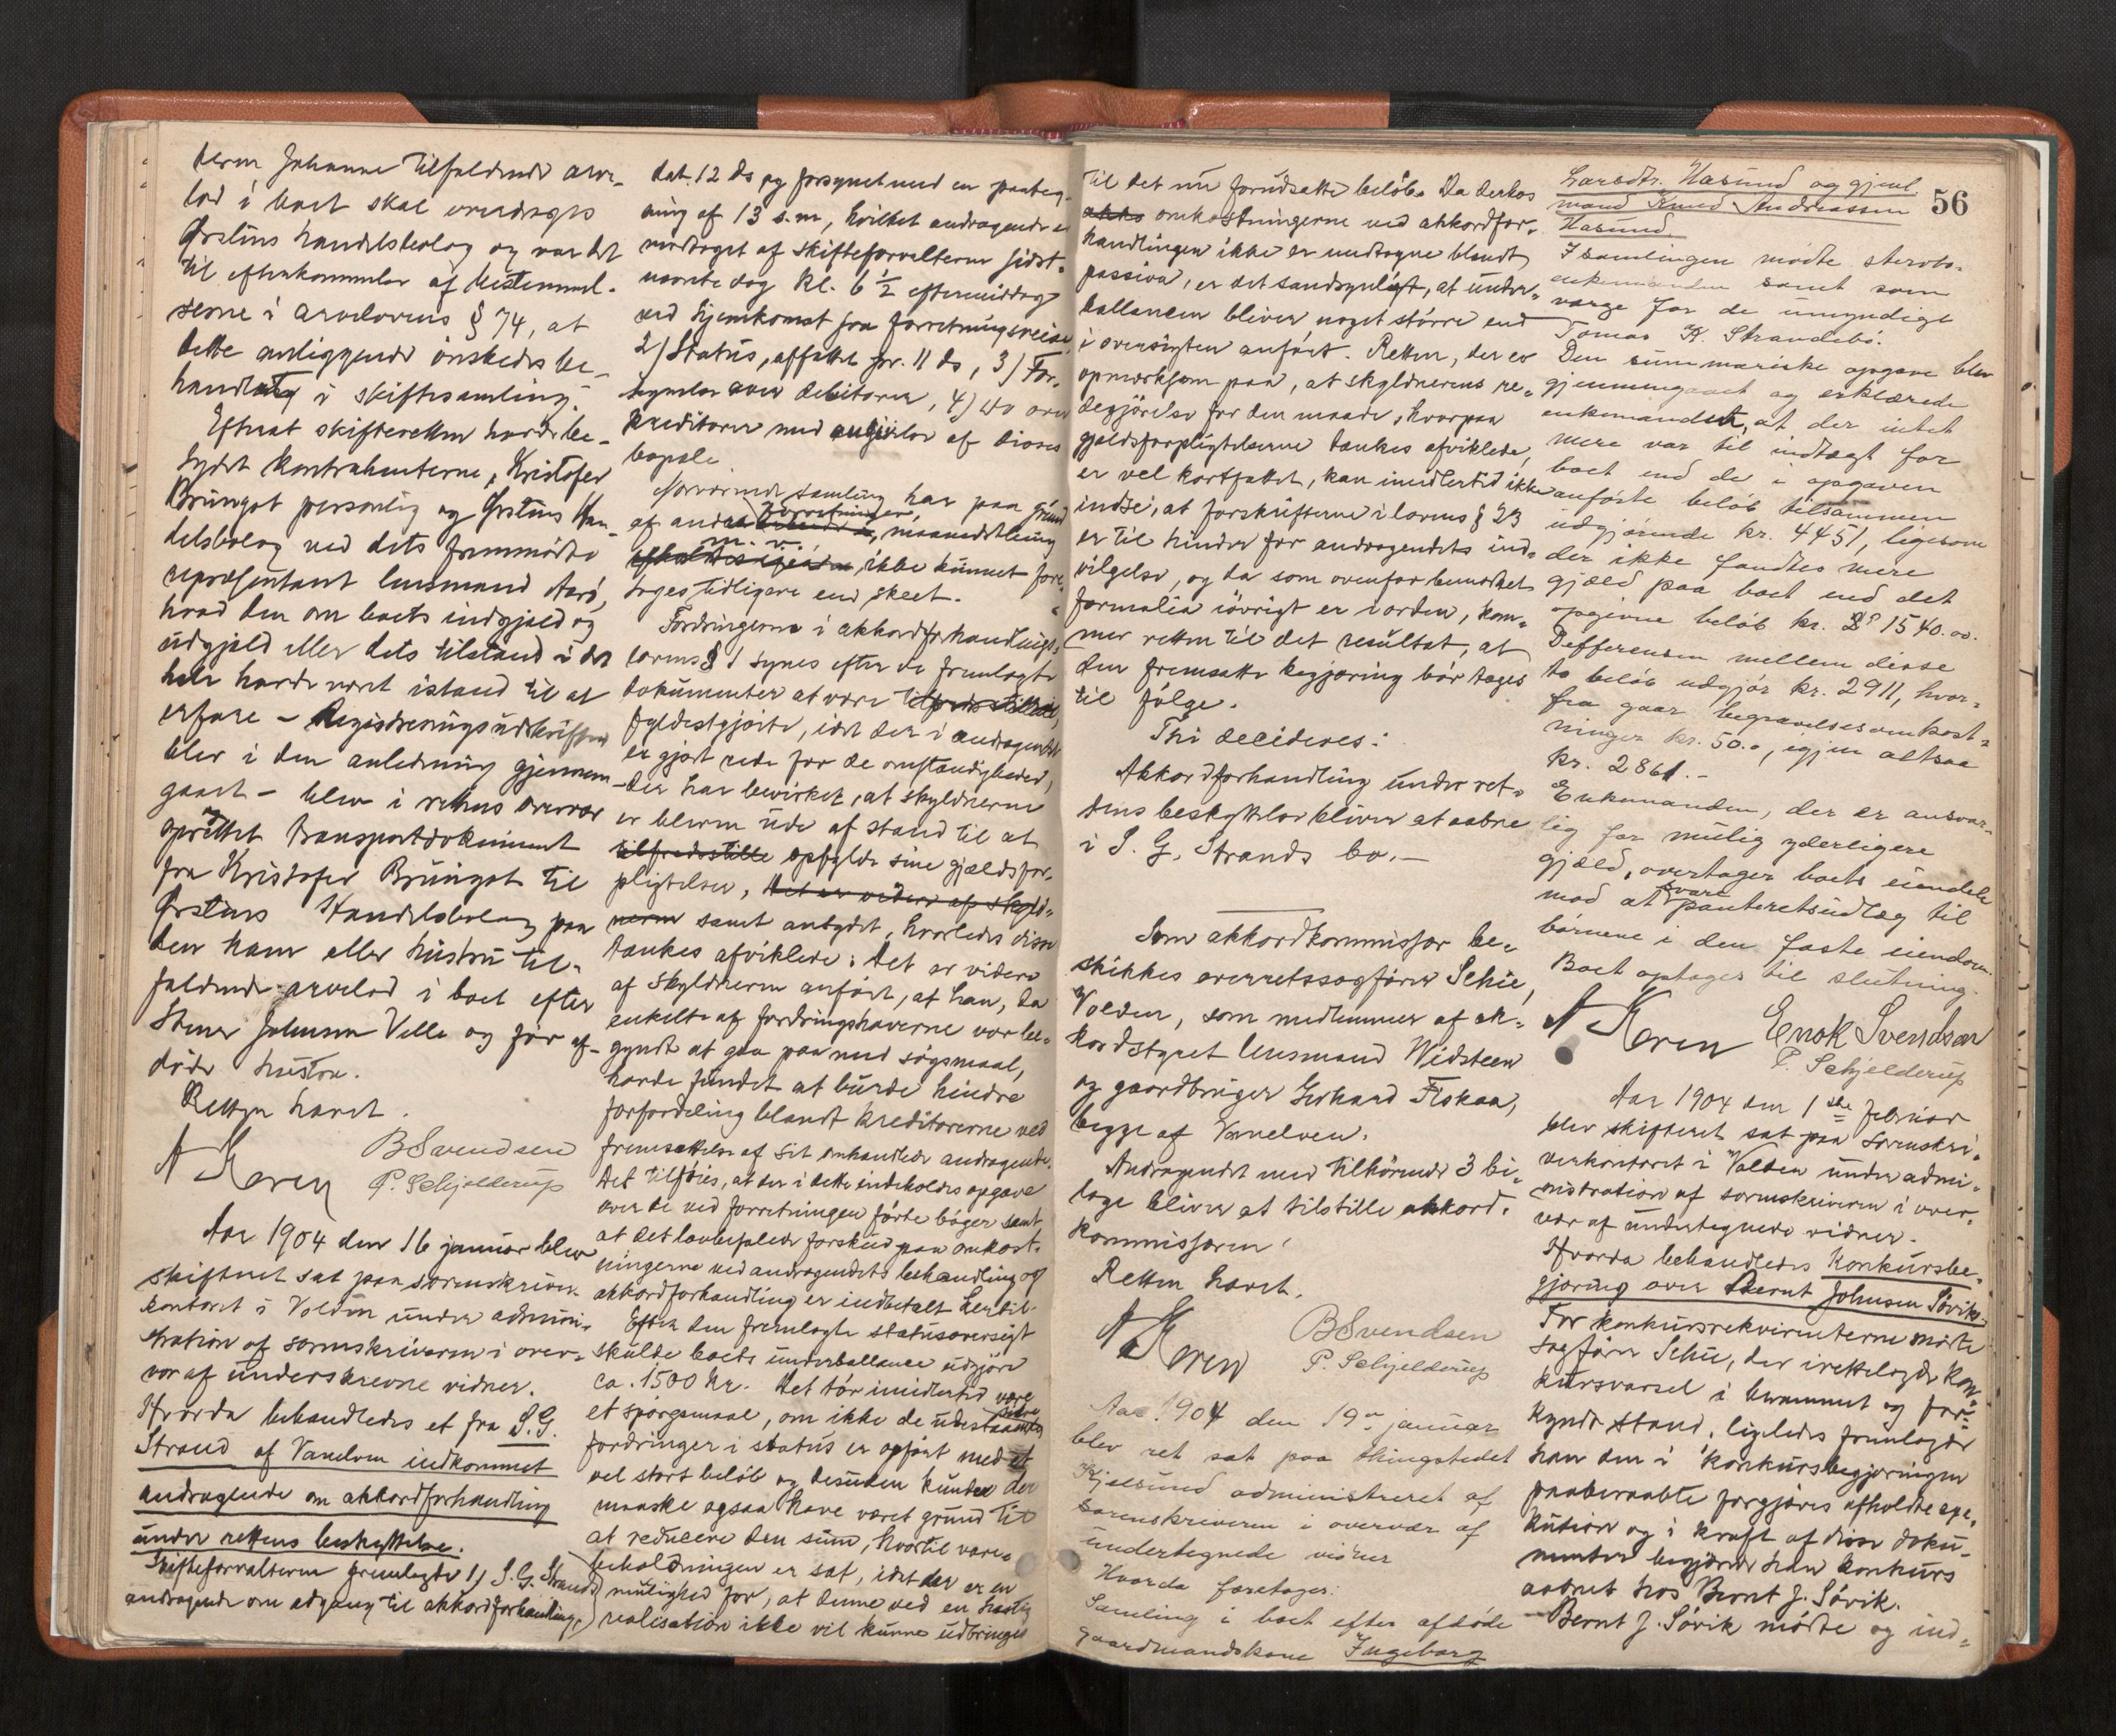 deren Johanne tilfaldende arve-
lod i boet skal overdrages
Ørstens handelsbolag og var det
til efterkommelse af bestemmel-
serne i arvelovens § 74, at
dette anliggende ønskedes be-
handlet i skiftesamling.
Efterat skifteretten havde be-
tydet kontrahenterne, Kristofer
Brungot personlig og Ørstens Han-
delsbolag ved dets fremmødte
repræsentant lensmand Aarø,
hvad den om boets indgjæld og
udgjæld eller dets tilstand i det
hele havde været istand til at
erfare – Registreringsudskriften
blev i den anledning gjennem-
gaaet – blev i rettens overvær
oprettet transportdokument
fra Kristofer Brungot til
Ørstens Handelsbolag paa
den ham eller hustru til-
faldende arvelod i boet efter
Steiner Johnsen Velle og før af-
døde hustru.
Retten hævet.
A Koren BSvendsen
P. Schjelderup
Aar 1904 den 16 januar blev
skifteret sat paa sorenskriver-
kontoret i Volden under admini-
stration af sorenskriveren i over-
vær af underskrevne vidner.
Hvorda behandledes et fra S.G.
Strand af Vanelven indkommet
andragende om akkordforhandling
under rettens beskyttelse.
Skifteforvalteren fremlagde 1) S. G. Strands
andragende om adgang til akkordforhandling,
dat. 12 ds og forsynet med en paateg-
ning af 13 s.m, hvilket andragende er
modtaget af skifteforvalteren sidst-
nævnte dag kl. 6 ½ eftermiddag
ved hjemkomst fra forretningsreise,
2) Status, affattet pr. 11 ds, 3) For-
tegnelse over debitorer, 4) do over
kreditorer med angivelse af disses
bopæle.
Nærværende samling har paa grund
af andre forretninger, maanedsthing
m. v. ikke kunnet fore-
tages tidligere end skeet.
Fordringerne i akkordforhandlings-
lovens § 1 synes efter de fremlagte
dokumenter at være tilfredsstillede,
fyldestgjorte, idet der i andragendet
er gjort rede for de omstændigheder,
der har bevirket, at skyldneren
er bleven ude af stand til at
tilfredsstille opfylde sine gjældsfor-
pligtelser, det er videre af skyld-
neren samt antydet, hvorledes disse
tænkes afviklede; det er videre
af skyldneren anført, at han, da
enkelte af fordringshaverne var be-
gyndt at gaa paa med søgsmaal,
havde fundet at burde hindre
forfordeling blandt kreditorerne ved
fremsættelse af sit omhandlede andragende.
Det tilføies, at der i dette indeholdes opgave
over de ved forretningen førte bøger samt
at det lovbefalede forskud paa omkost-
ningerne ved andragendets behandling og
akkordforhandling er indbetalt hertil.
Efter den fremlagte statusoversigt
skulde boets underballance udgjøre
ca. 1500 kr. Det tør imidlertid være
et spørgsmaal, om ikke de udestaaende
fordringer i status er opført med et
vel stort beløb og desuden kunde der
maaske ogsaa have været grund til
at reducere den sum, hvortil vare-
beholdningen er sat, idet der er en
mulighed for, at denne ved en hastig
realisation ikke vil kunne udbringes
56
til det nu forudsatte beløb. Da derhos
akko omkostningerne ved akkordfor-
handlingen ikke er medtagne blandt
passiva, er det sandsynligt, at under-
ballancen bliver noget større end
i oversigten anført. Retten, der er
opmerksom paa, at skyldnerens re-
degjørelse for den maade, hvorpaa
gjældsforpligtelserne tænkes afviklede,
er vel kortfattet, kan imidlertid ikke
indse, at forskrifterne i lovens § 23
er til hinder for andragendets ind-
vilgelse, og da som ovenfor bemerket
formalia iøvrigt er i orden, kom-
mer retten til det resultat, at
den fremsatte begjæring bør tages
til følge.
Thi decideres:
Akkordforhandling under ret-
tens beskyttelse bliver at aabne
i S. G. Strands bo.–
Som akkordkommissær be-
skikkes overretssagfører Schie,
Volden, som medlemmer af ak-
kordstyret lensmand Widsteen
og gaardbruger Gerhard Fiskaa,
begge af Vanelven.
Andragendet med tilhørende 3 bi-
lage bliver at tilstille akkord-
kommissæren.
Retten hævet.
A Koren BSvendsen
P. Schjelderup
Aar 1904 den 19de januar
blev ret sat paa thingstedet
Kjelsund administreret af
sorenskriveren i overvær af
undertegnede vidner
Hvorda foretoges:
Samling i boet efter afdøde
gaardmandskone Ingeborg
Larsdtr. Hasund og gjenl.
mand Knud Andreassen
Hasund
I samlingen mødte stervbo-
enkemanden samt som
værge for de umyndige
Tomas K. Strandebø.
Den summariske opgave blev
gjennemgaaet og erklærede
enkemanden, at der intet
mere var til indtægt for
boet end de i opgaven
anførte beløb tilsammen
udgjørende kr. 4451, ligesom
der ikke fandtes mere
gjæld paa boet end det
opgivne beløb kr. 1540.00.
Differensen mellem disse
to beløb udgjør kr. 2911, hvor-
fra gaar begravelsesomkost-
ninger kr. 50.0, igjen altsaa
kr. 2861.–
Enkemanden, der er ansvar-
lig for mulig yderligere
gjæld, overtager boets eiendele
mod at svare panteretsudlæg til
børnene i den faste eiendom.
Boet optages til slutning.
A Koren Enok Svendsen
P. Schjelderup
Aar 1904 den 1ste februar
blev skifteret sat paa sorenskri-
verkontoret i Volden under admi-
nistration af sorenskriveren i over-
vær af undertegnede vidner.
Hvorda behandledes Konkursbe-
gjæring over Bernt Johnsen Søvik.
For konkursrekvirenterne mødte
sagfører Schie, der irettelagde kon-
kursvarsel i berammet og for-
kyndt stand, ligeledes fremlagde
han den i konkursbegjæringen
paaberaabte forgjæves afholdte exe-
kution og i kraft af disse doku-
menter begjærede han konkurs
aabnet hos Bernt J. Søvik.
Bernt J. Søvik mødte og ind-